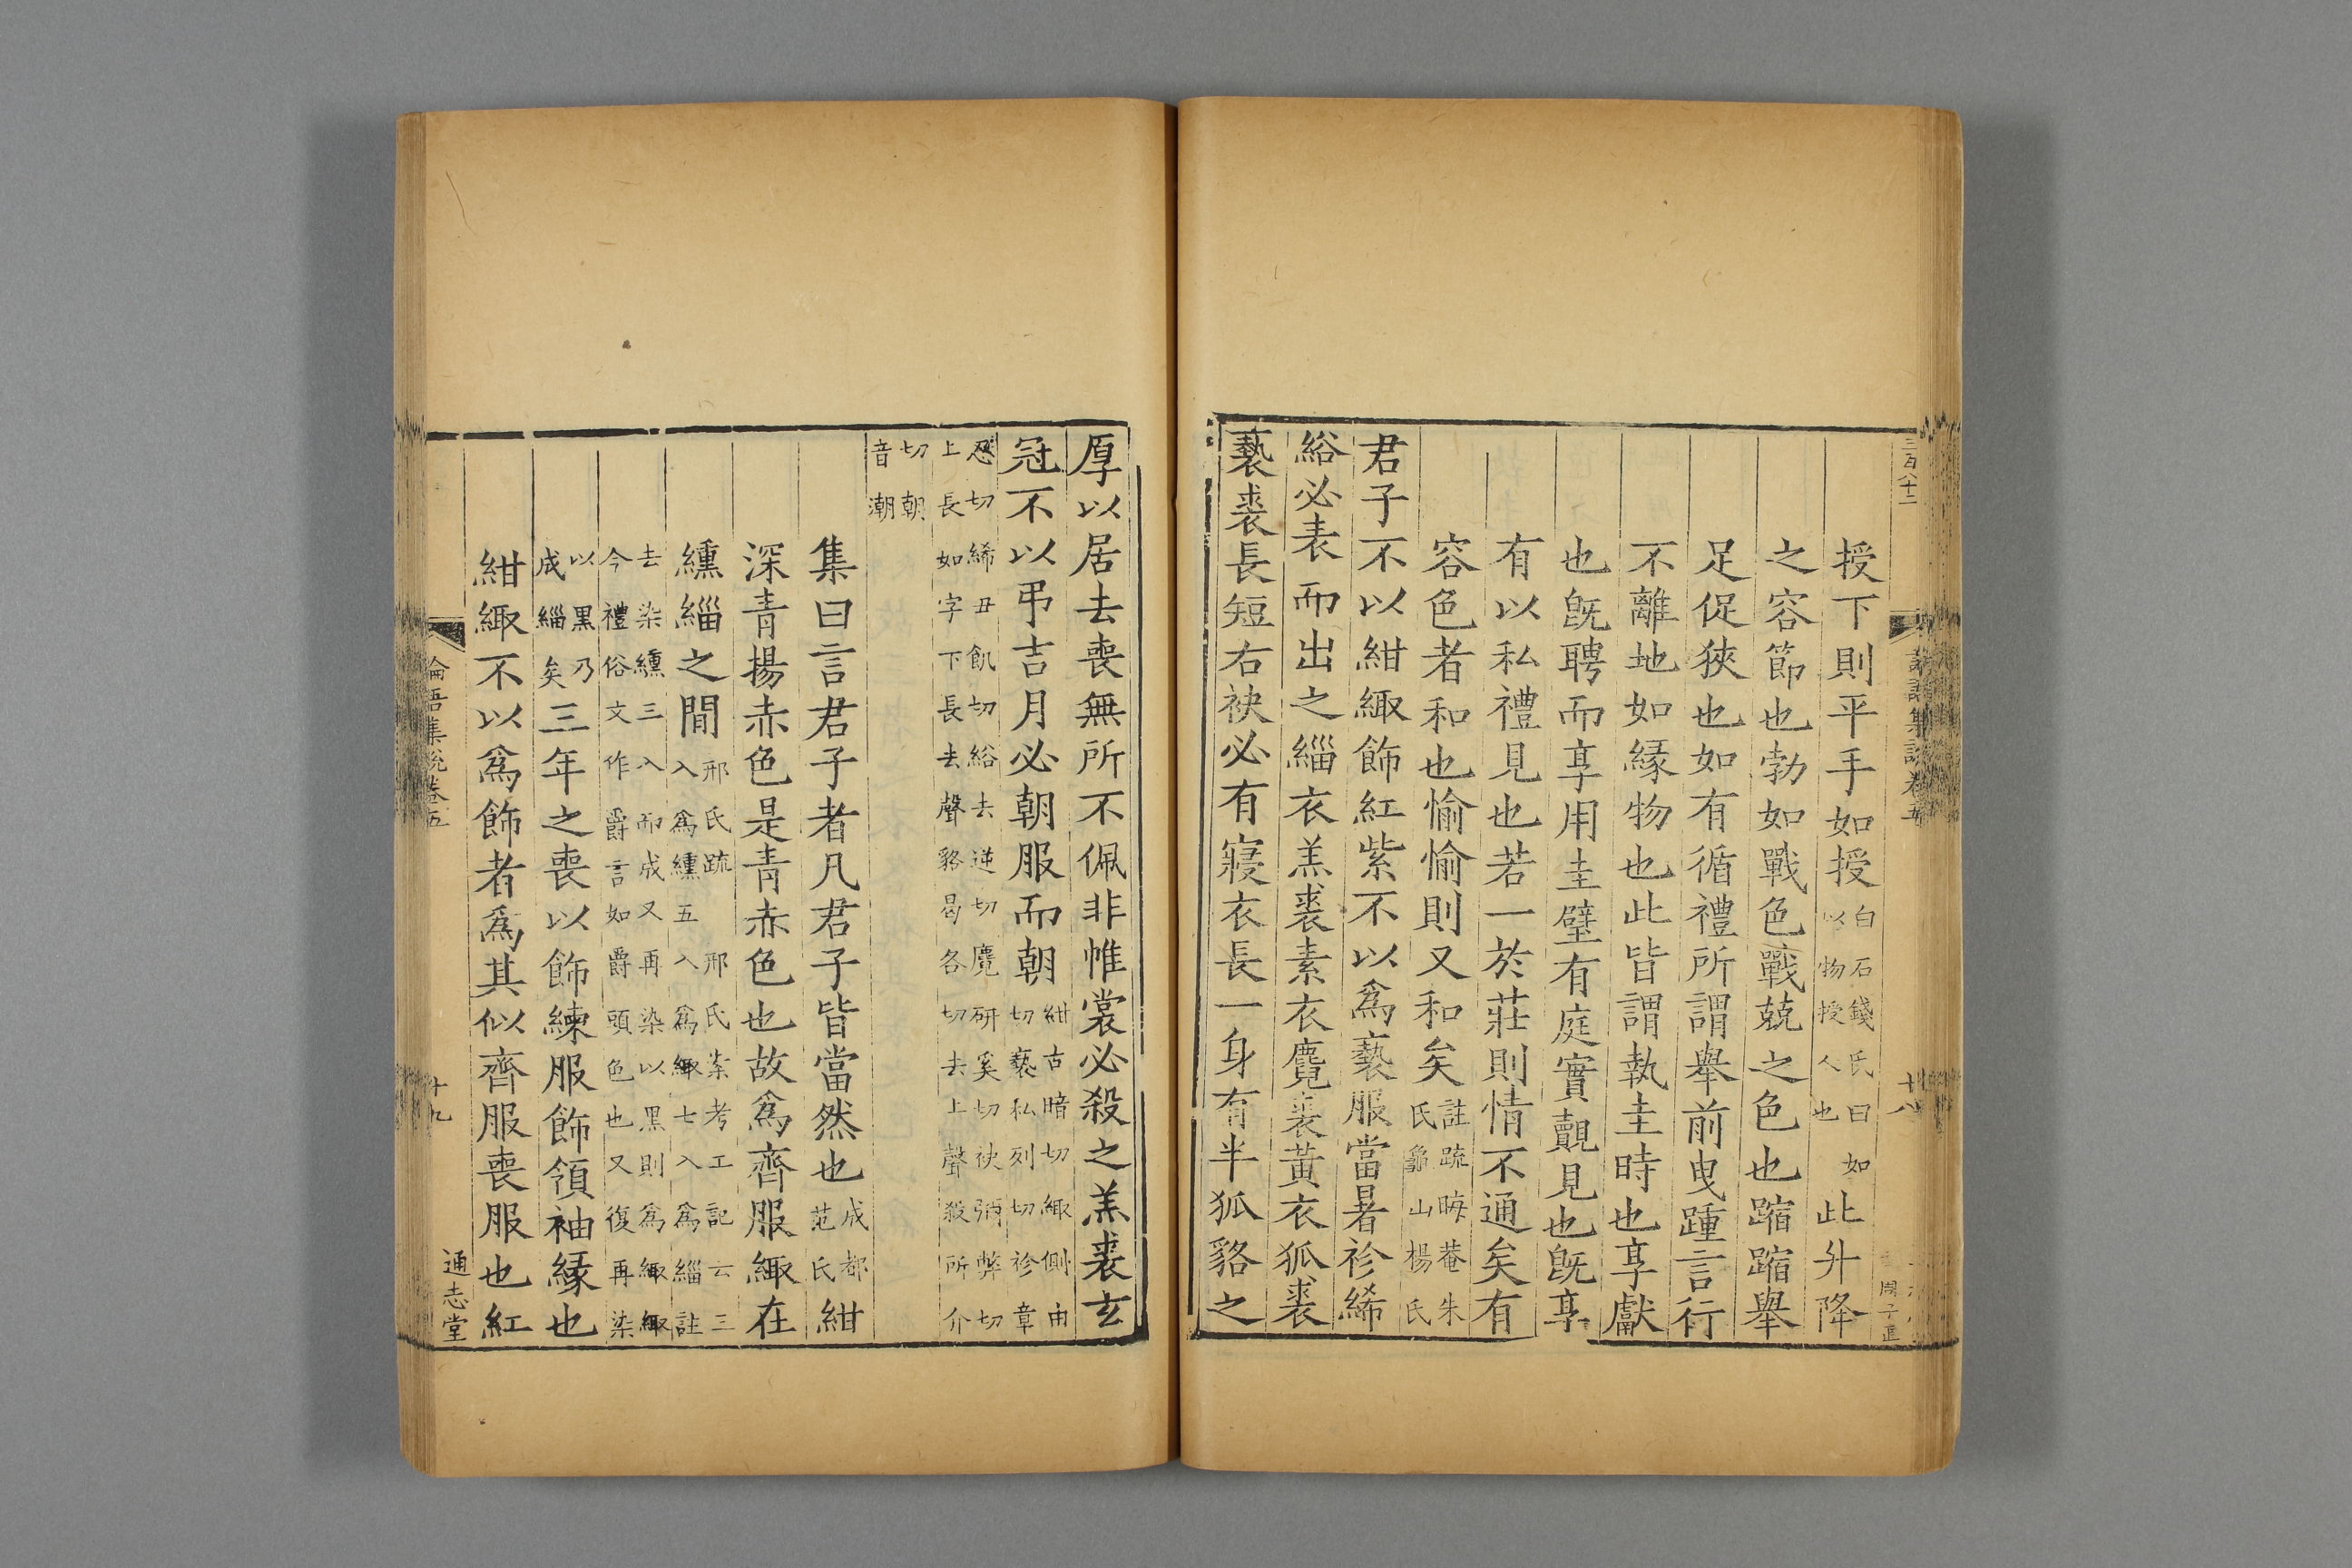 三百八十二
論語集說卷五
十八
周子正
授下則平手如授白石錢氏曰如以物授人也此升降
之容節也勃如戰色戰兢之色也蹜蹜舉
足促狹也如有循禮所謂舉前曳踵言行
不離地如緣物也此皆謂執圭時也享獻
也旣聘而享用圭璧有庭實覿見也旣享
有以私禮見也若一於莊則情不通矣有
容色者和也愉愉則又和矣註疏晦菴朱氏龜山楊氏
君子不以紺緅飾紅紫不以爲褻服當暑袗絺
綌必表而出之緇衣羔裘素衣麑裘黃衣狐裘
褻裘長短右袂必有寢衣長一身有半狐貉之
厚以居去喪無所不佩非帷裳必殺之羔裘玄
冠不以弔吉月必朝服而朝紺古暗切緅側由切褻私列切袗章
忍切絺丑飢切綌去逆切麑硏奚切袂彌弊切上長如字下長去聲貉曷各切去上聲殺所介
切朝音潮
集曰言君子者凡君子皆當然也成都范氏紺
深青揚赤色是靑赤色也故爲齊服緅在
纁緇之閒邢氏疏入爲纁五入爲緅七入爲緇註邢氏案考工記云三
去染纁三入而成又再染以黑則爲緅緅今禮俗文作爵言如爵頭色也又復再染
以黑乃成緇矣三年之喪以飾練服飾領袖緣也
紺緅不以爲飾者爲其似齊服喪服也紅
論語集說卷五
十九
通志堂